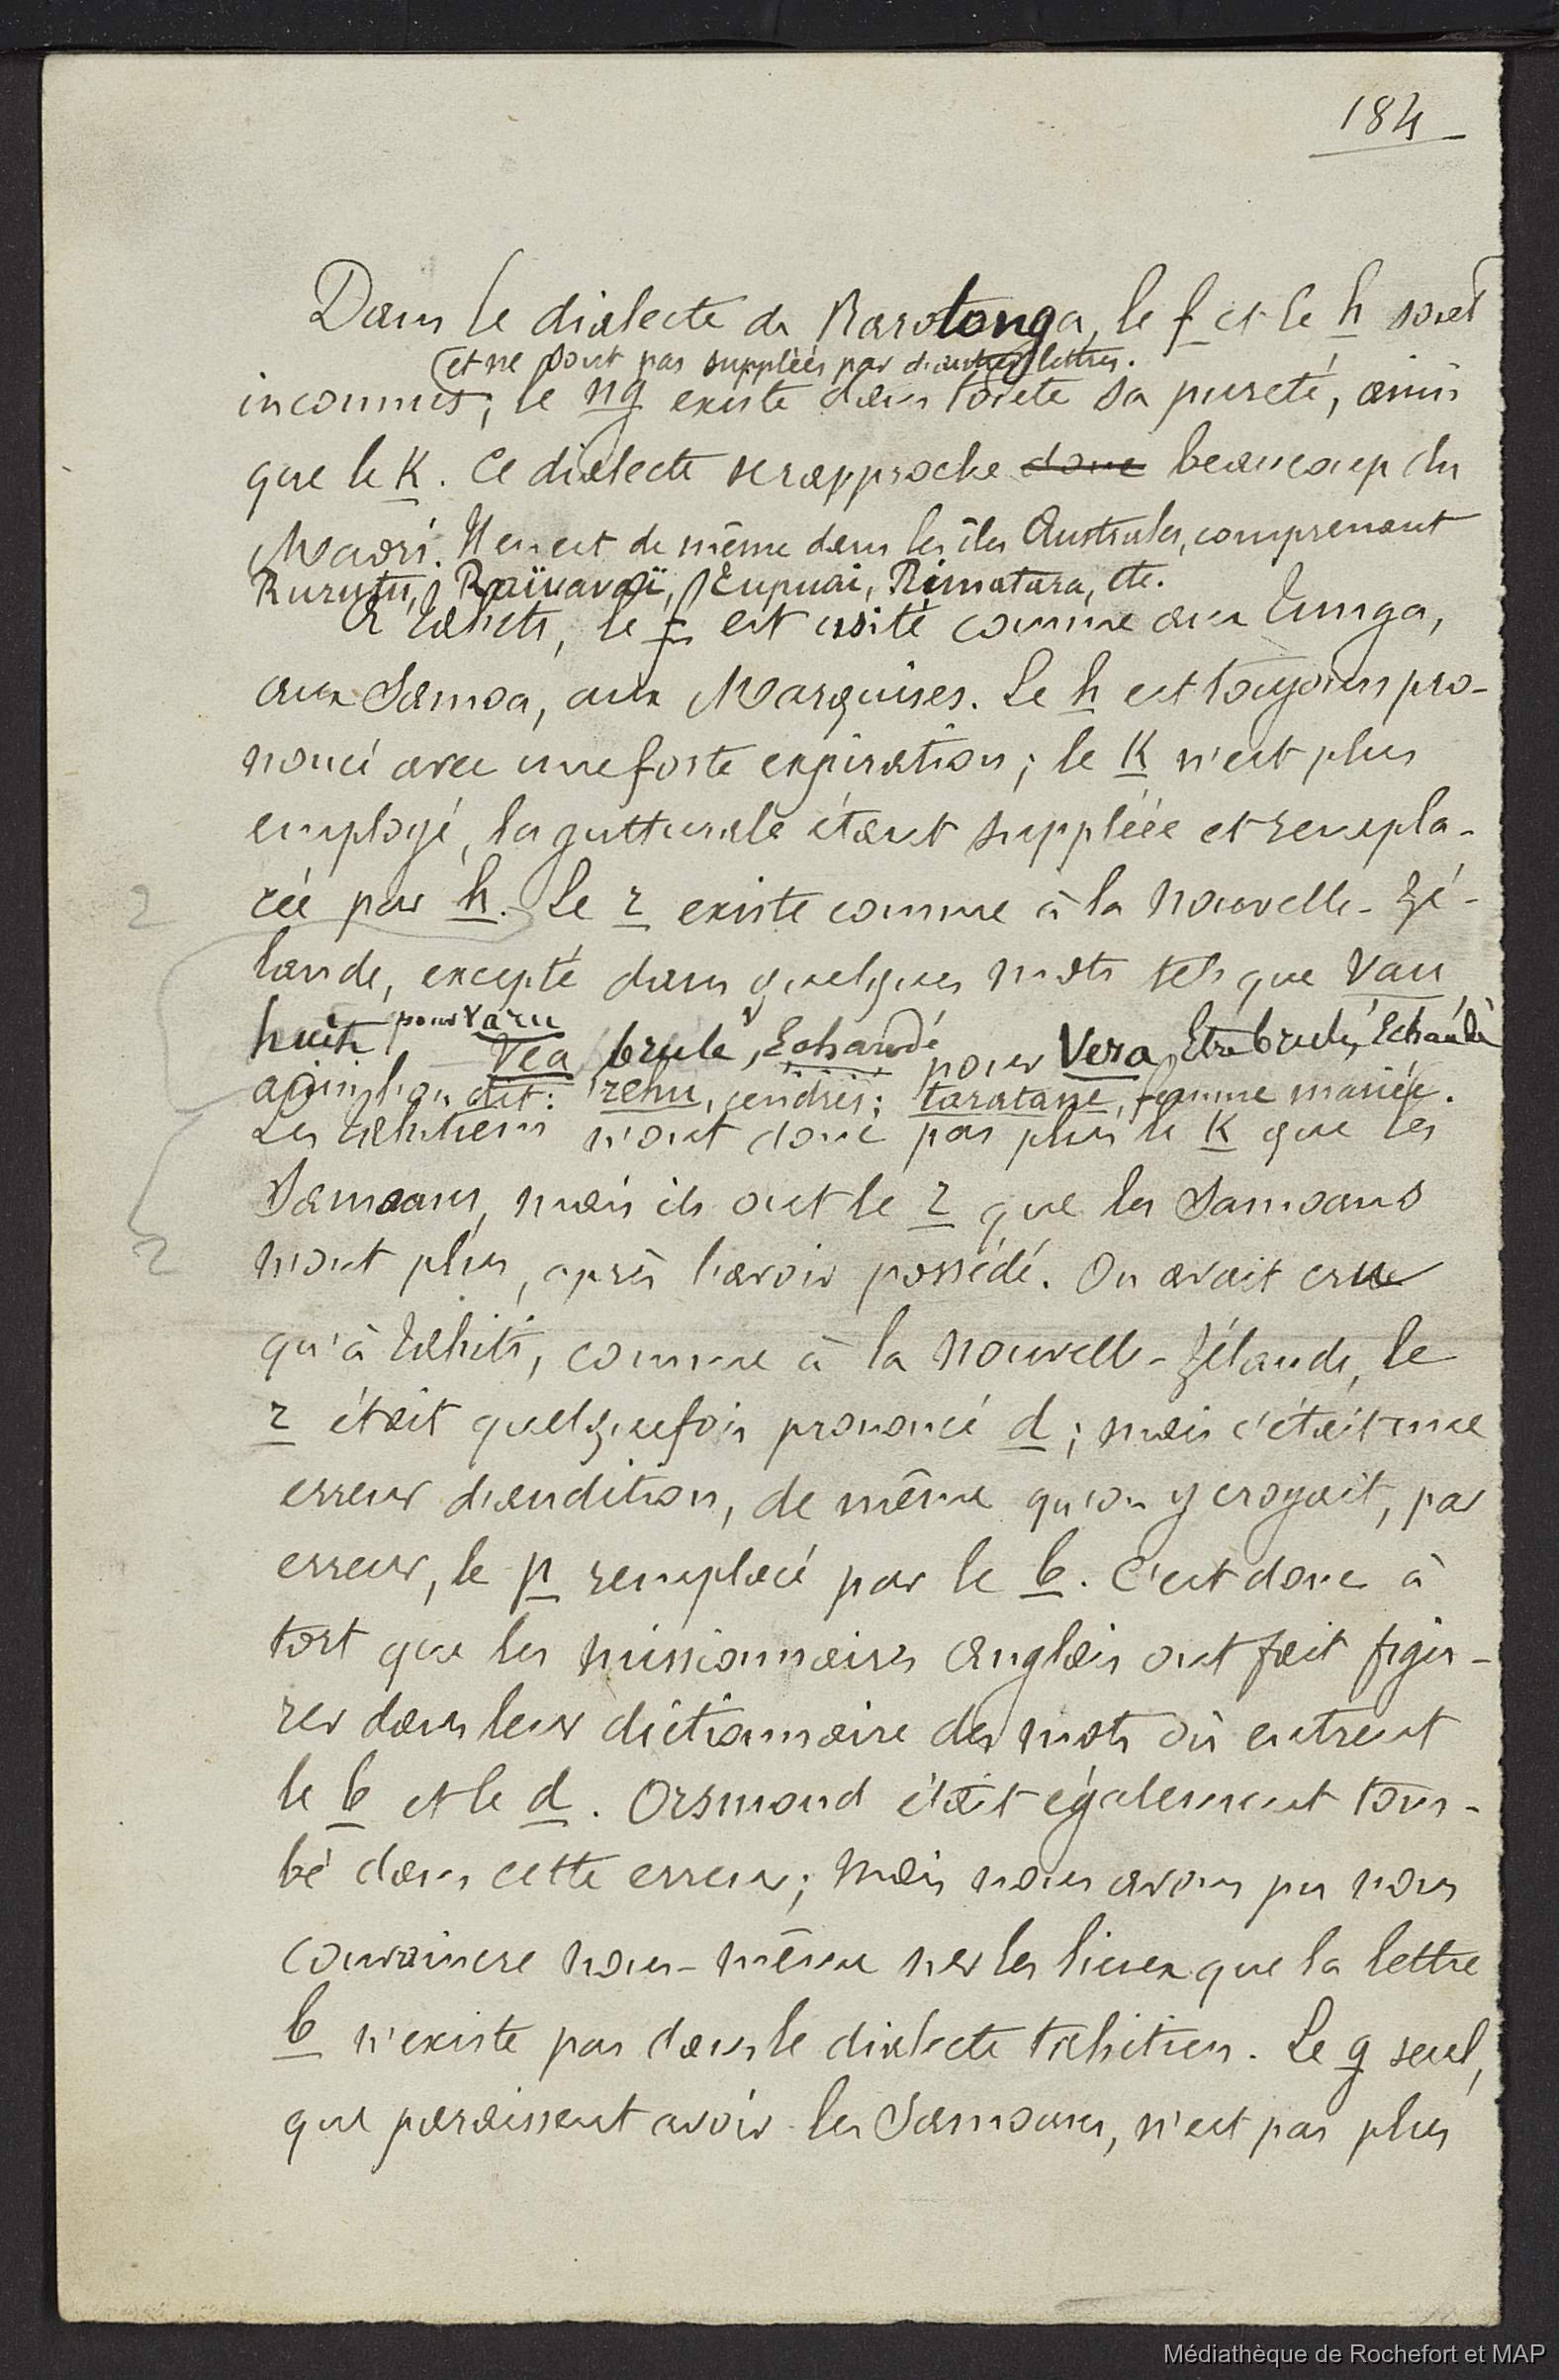 184
Dans le dialecte de Rarotonga, le f et le h sont
(et ne sont pas suppléés par d'autres lettres.
inconnus; le ng existe dans toute sa pureté, ainsi
que le K. Ce dialecte se rapproche donc beaucoup du
Maori. Il en est de même dans les îles Australes, comprenant
Rurutu, Raïvavaï, Tupuai, Rimatara, etc.
A Tahiti, le f est usité comme aux Tunga,
aux Samoa, aux Marquises. Le h est toujours pro-
noncé avec une forte expiration; le K n'est plus
employé, la gutturale étant suppléée et rempla-
2 cée par h. Le r existe comme à la Nouvelle-Zé-
lande, excepté dans quelques mots tels que Vau
huit, pour Varu
Vea, brulé, Echaudé pour Vera, Etre brulé, Echaudé
ainsi l'on dit: rehu, cendres; taratane, femme mariée.
Les Tahitiens n'ont donc pas plus le K que les
Samoans, mais ils ont le r que les Samoans
2 n'ont plus, après l'avoir possédé. On avait cru
qu'à Tahiti, comme à la Nouvelle-Zélande, le
r était quelquefois prononcé d; mais c'était une
erreur d'audition, de même qu'on y croyait, par
erreur, le p remplacé par le b. C'est donc à
tort que les missionnaires anglais ont fait figu-
rer dans leur dictionnaire des mots où entrent
le b et le d. Orsmond était également tom-
bé dans cette erreur; mais nous avons pu nous
convaincre nous-même sur les lieux que la lettre
b n'existe pas dans le dialecte tahitien. Le g seul,
que paraissent avoir les Samoans, n'est pas plus
Médiathèque de Rochefort et MAP